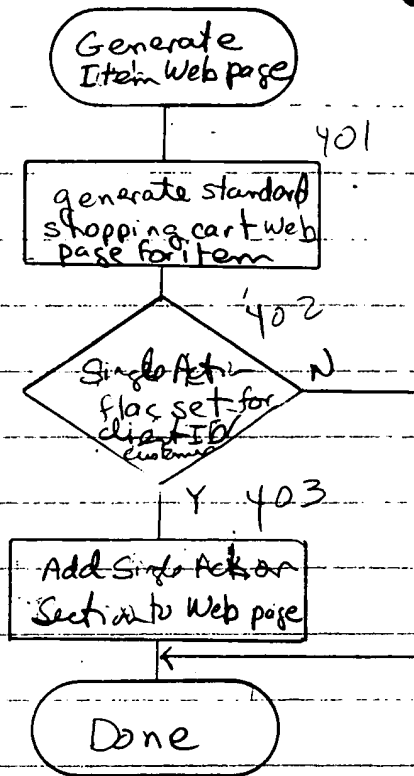 Generate
Item Web page
401
generate standard
shopping cart Web
page for item
402
Single Action
N
flag set for
client ID/
customer
Y
403
Add Single Action
Section to Web page
Done